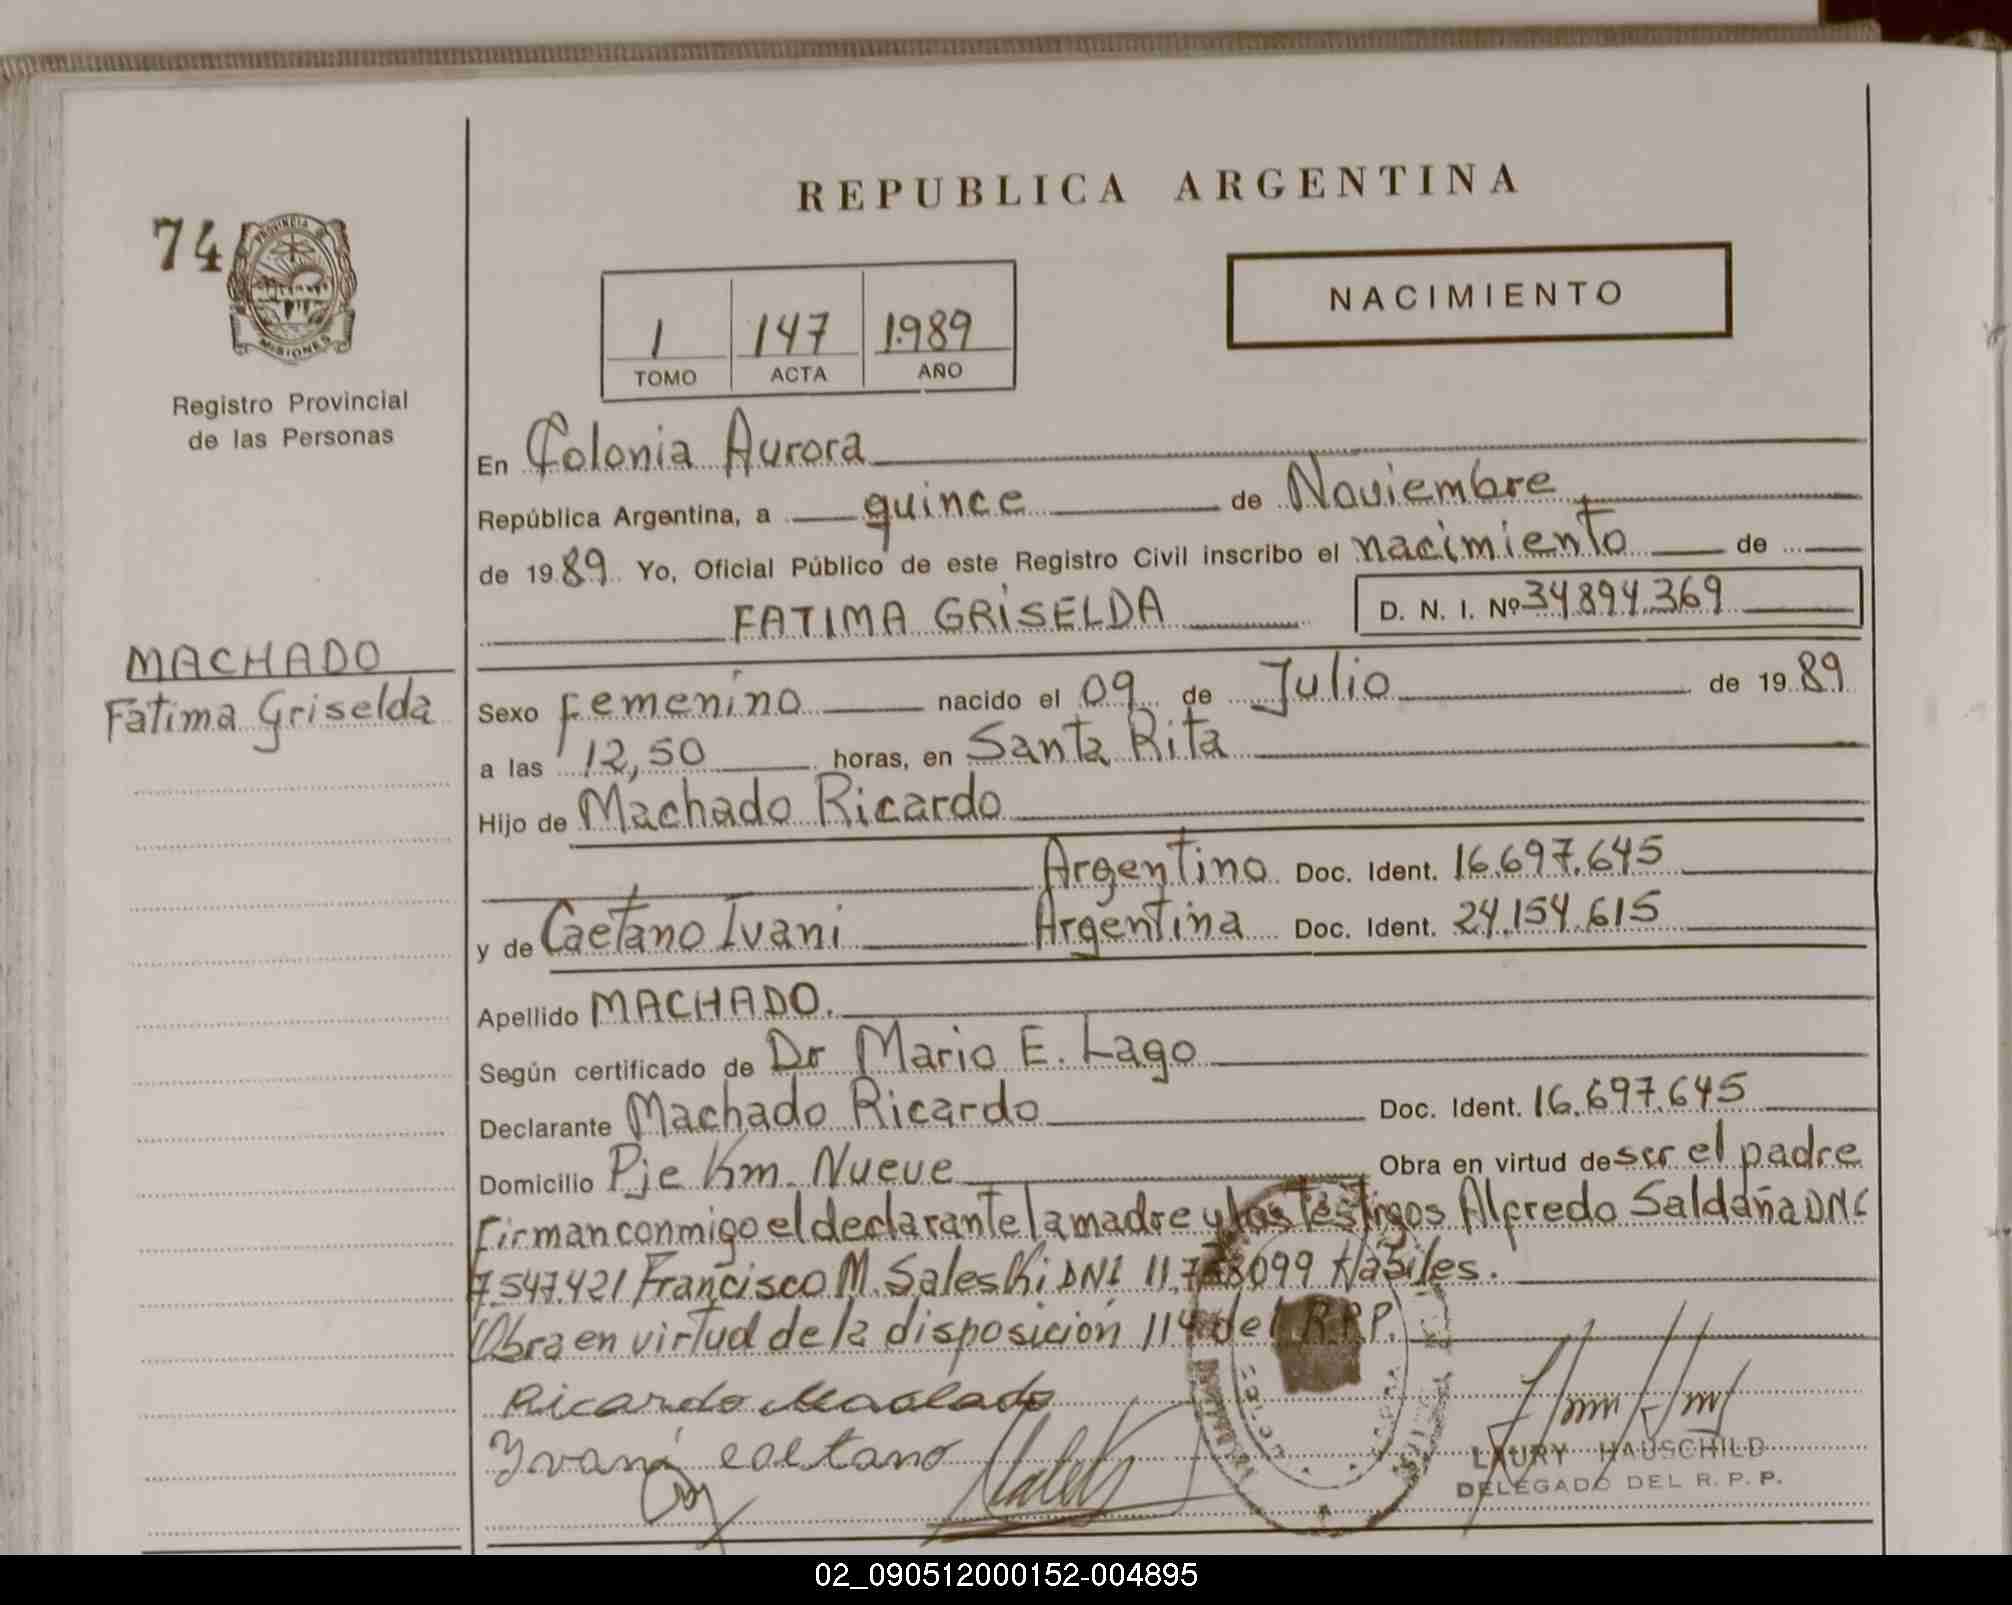 REPUBLICA ARGENTINA
74
PROVINCIA DE
MISIONES
NACIMIENTO
1 147 1989
TOMO ACTA AÑO
Registro Provincial
de las Personas
En Colonia Aurora
República Argentina, a quince de Noviembre
de 1989 Yo, Oficial Público de este Registro Civil inscribo el nacimiento de
FATIMA GRISELDA D. N. I. Nº 34894.369
MACHADO
Fatima Griselda
Sexo Femenino nacido el 09 de Julio de 1989
a las 12,50 horas, en Santa Rita
Hijo de Machado Ricardo
Argentino Doc. Ident. 16.697.645
y de Caetano Ivani Argentina Doc. Ident. 24.154.615
Apellido MACHADO.
Según certificado de Dr Mario E. Lago
Declarante Machado Ricardo Doc. Ident. 16.697.645
Domicilio Pje Km. Nueve Obra en virtud de ser el padre
Firman conmigo el declarante la madre y los testigos Alfredo Saldaña DNI
7.547.421 Francisco M. Saleski DNI 11.778099 Hábiles.
Obra en virtud de la disposición 114 del R.R.P.
Ricardo Machado
Yvani caetano
LAURY HAUSCHILD
DELEGADO DEL R. P. P.
02_090512000152-004895